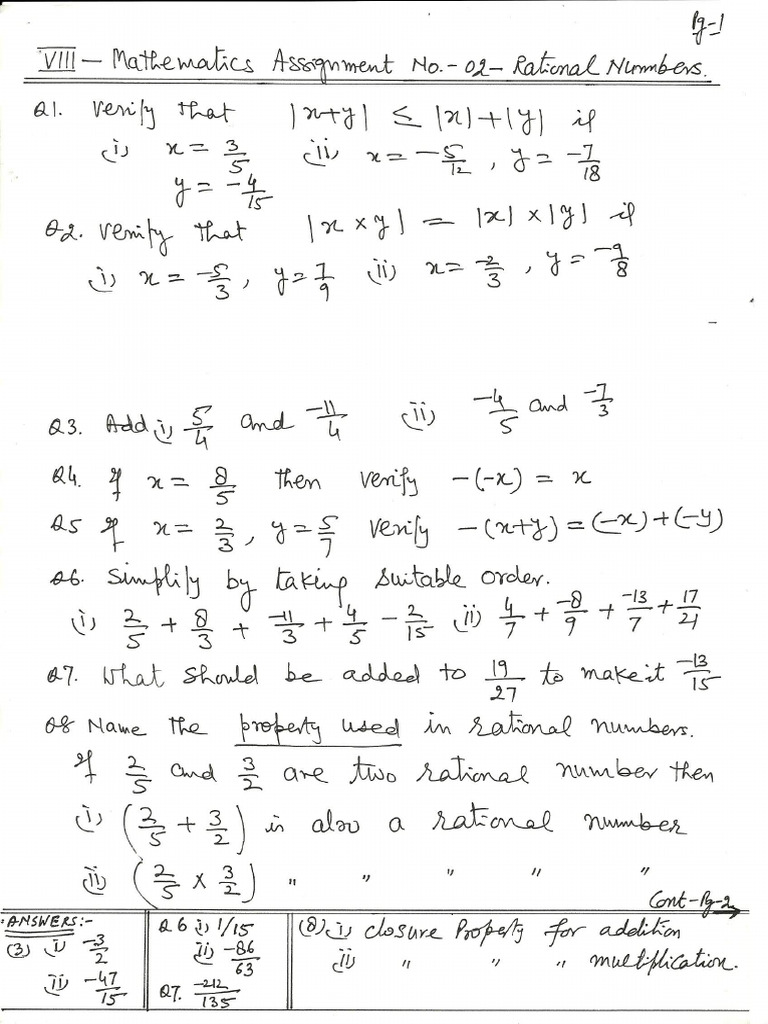 Pg-1
VIII - Mathematics Assignment No.-02-Rational Numbers.
Q1. Verify that |x+y| ≤ |x|+|y| if
i) x = 3/5 ii) x = -5/12, y = -7/18
y = -4/15
Q2. Verify that |x × y| = |x| × |y| if
i) x = -5/3, y = 7/9 ii) x = -2/3, y = -9/8
Q3. Add i) 5/4 and -11/4 ii) -4/5 and -7/3
Q4. If x = 8/5 then verify -(-x) = x
Q5 If x = 2/3, y = 5/7 verify -(x+y) = (-x)+(-y)
Q6. Simplify by taking suitable order.
i) 2/5 + 8/3 + -11/3 + 4/5 - 2/15 ii) 4/7 + -8/9 + -13/7 + 17/21
Q7. What should be added to 19/27 to make it -13/15
Q8 Name the property used in rational numbers.
If 2/5 and 3/2 are two rational number then
i) (2/5 + 3/2) is also a rational number
ii) (2/5 × 3/2) " " " " "
Cont-Pg-2
ANSWERS:-
(3) i) -3/2
ii) -47/15
Q6 i) 1/15
ii) -86/63
Q7. -212/135
(8) i) closure Property for addition
ii) " " " multiplication.